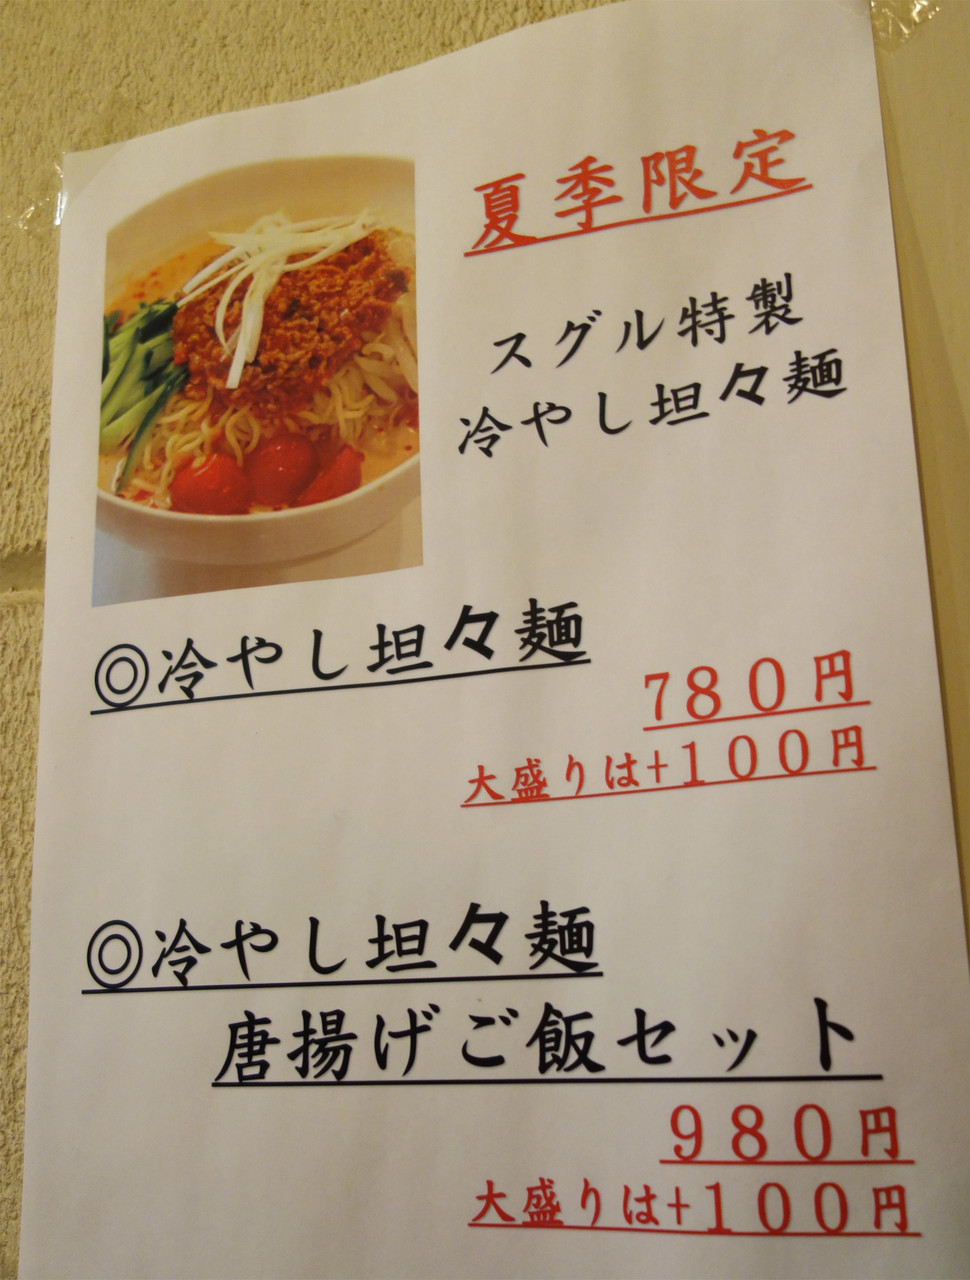 夏季限定
スグル特製
冷やし坦々麺
◎冷やし坦々麺
780円
大盛りは+100円
◎冷やし坦々麺
唐揚げご飯セット
980円
大盛りは+100円